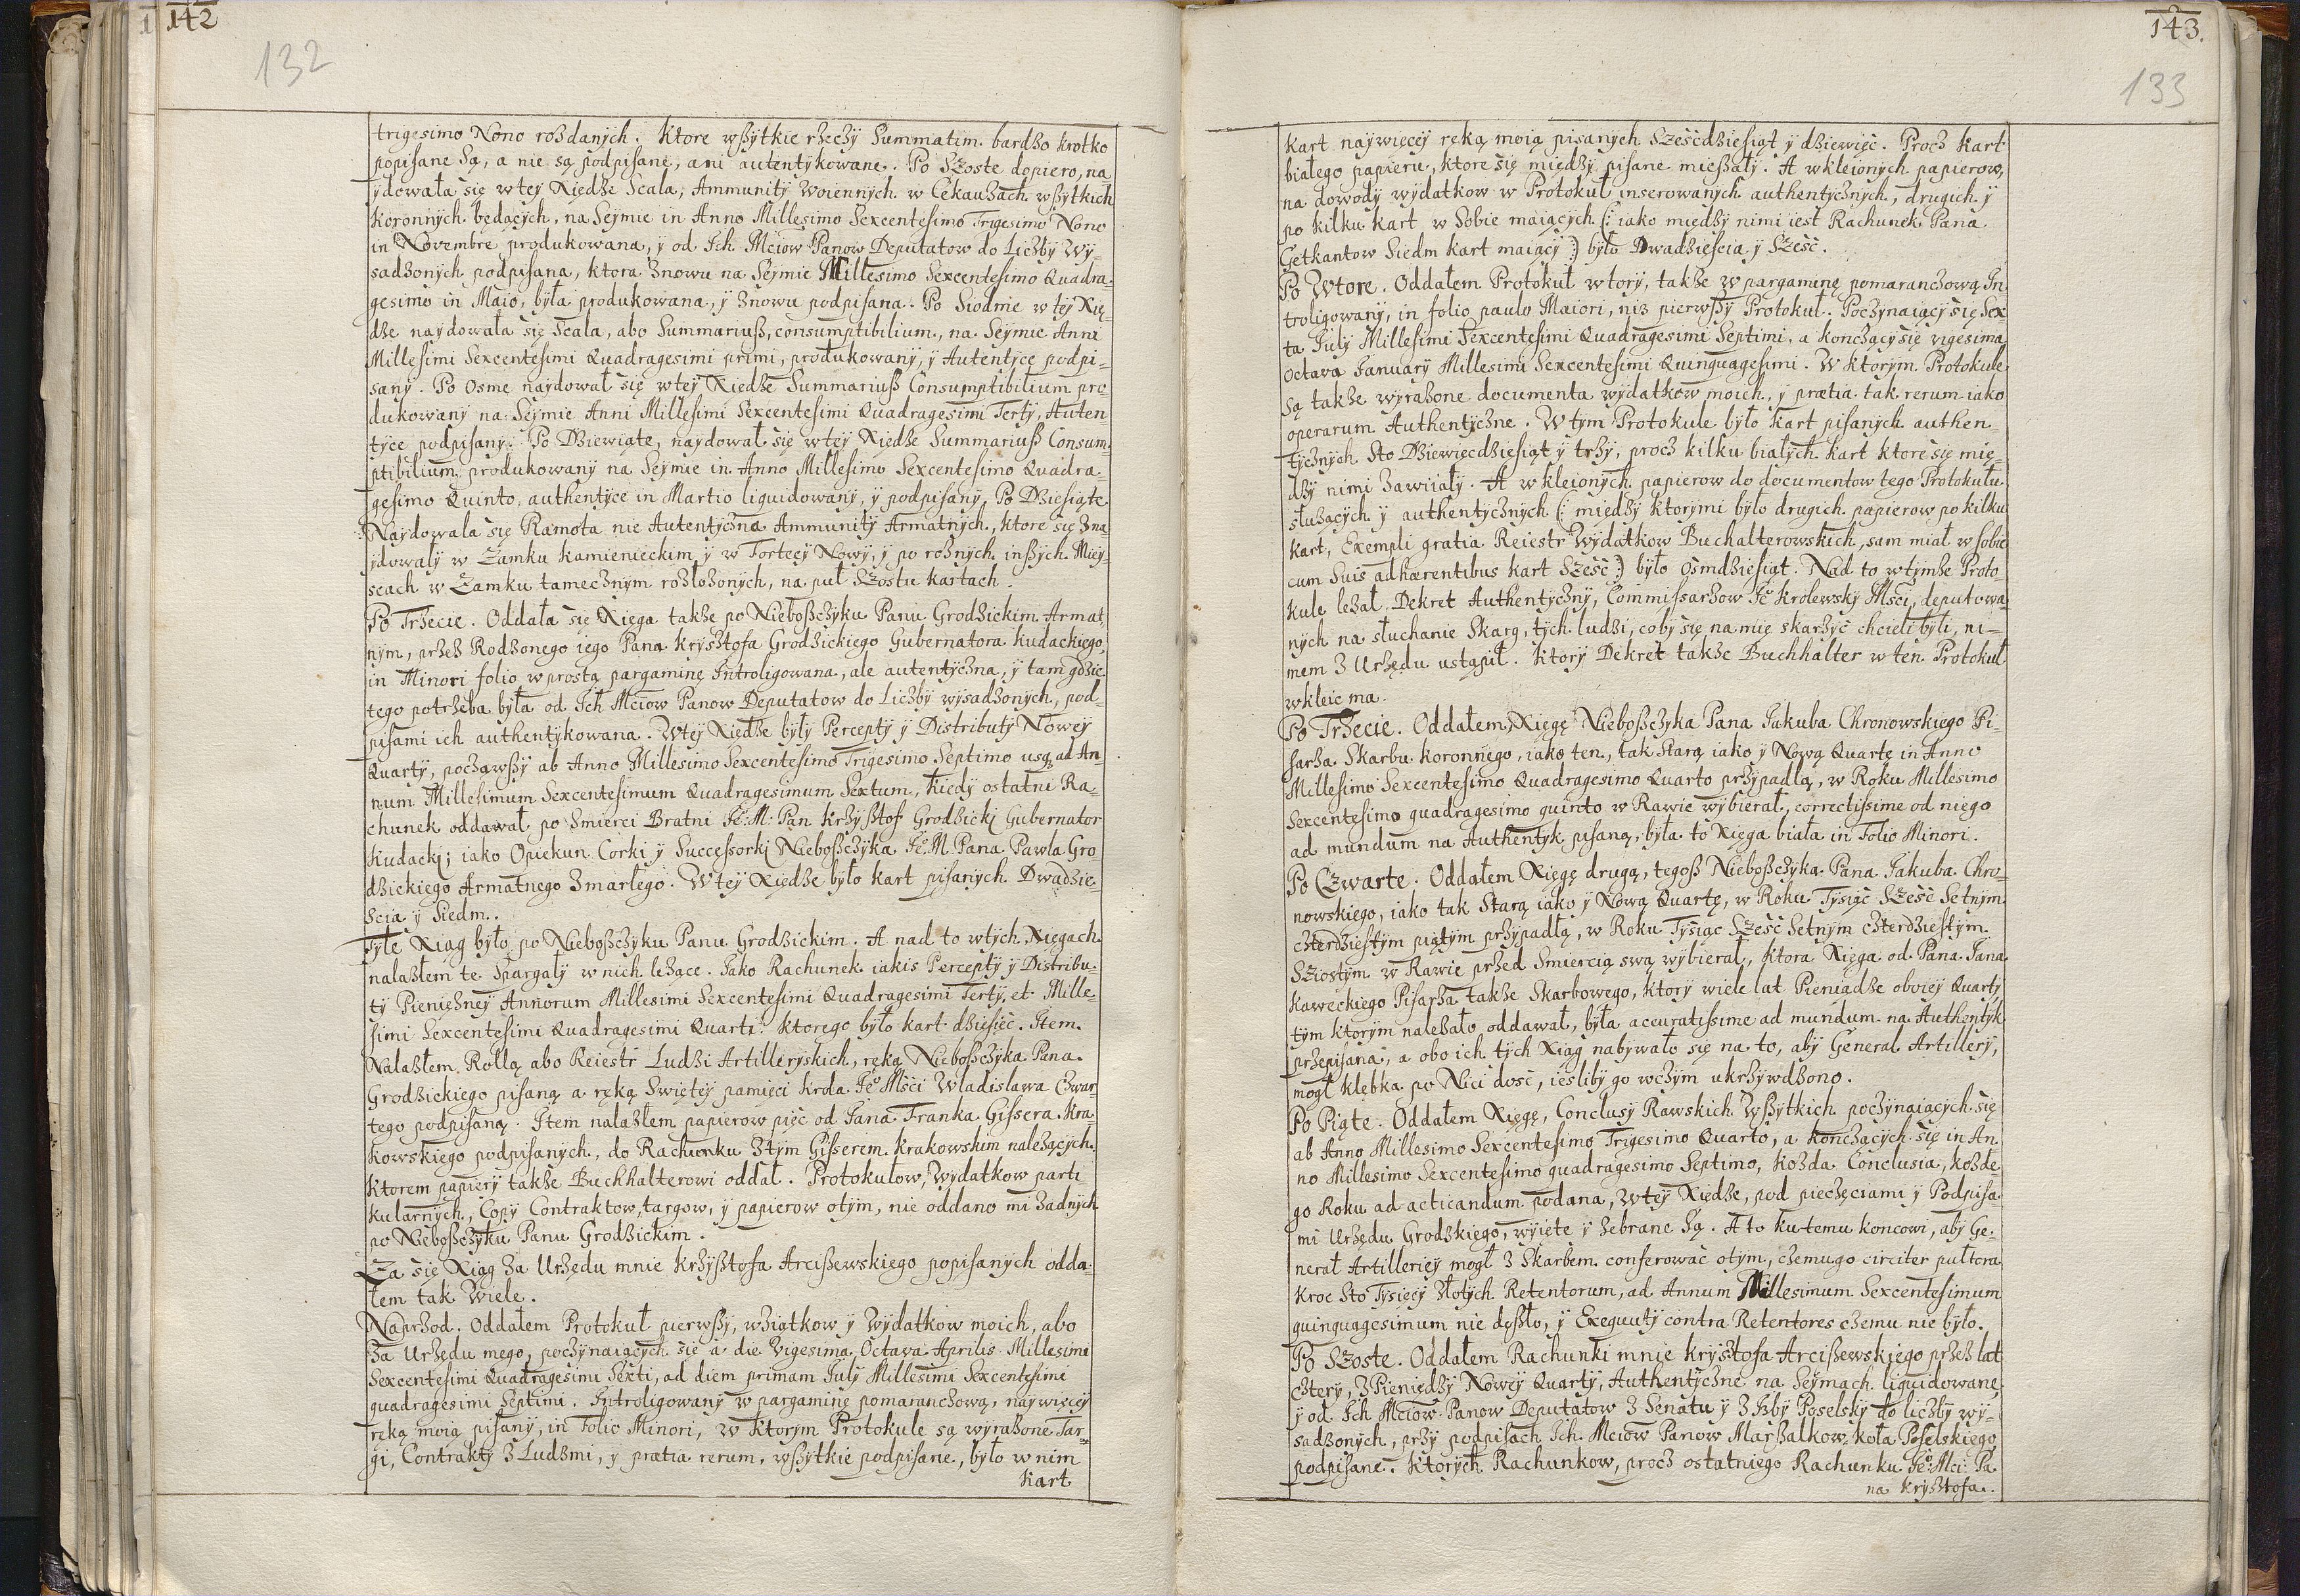 142
132
trigesimo Nono rozdanych. Ktore wszytkie rzeczy Summatim bardzo krotko
popisane Są, a nie są podpisane, ani autentykowane. Po Szoste dopiero, na
ydowała się w tey Xiędze Scala, Ammunity woiennych w Cekauzach wszytkich
Koronnych będących, na Seymie in Anno Millesimo Sexcentesimo Trigesimo Nono
in Novembre produkowana, y od Ich Mciow Panow Deputatow do Liczby Wy-
sadzonych podpisana, ktora znowu na Seymie Millesimo Sexcentesimo Quadra-
gesimo in Maio, była produkowana, y znowu podpisana. Po Siodme w tey Xię-
dze naydowała się Scala, abo Summariusz, consumptibilium, na Seymie Anni
Millesimi Sexcentesimi Quadragesimi primi, produkowany, y Autentyce podpi-
sany. Po Osme naydował się w tey Xiedze Summariusz Consumptibilium pro
dukowany na Seymie Anni Millesimi Sexcentesimi Quadragesimi Terty, Auten
tyce podpisany. Po Dziewiąte, naydował się w tey Xiedze Summariusz Consum-
ptibilium produkowany na Seymie in Anno Millesimo Sexcentesimo Quadra-
gesimo Quinto, authentyce in Martio liquidowany, y podpisany. Po Dziesiąte
Naydowala się Ramota nie Autentyczna Ammunity Armatnych, ktore się zna
ydowały w Zamku Kamienieckim y w Fortecy Nowy, y po roznych inszych Miey-
scach w Zamku tamecznym rozłozonych, na puł Szostu kartach.
Po Trzecie. Oddała się Xięga takze po Nieboszczyku Panu Grodzickim Armat
nym, przez Rodzonego iego Pana Krysztofa Grodzickiego Gubernatora Kudackiego,
in Minori folio w prostą pargaminę Introligowana, ale autentyczna, y tam gdzie
tego potrzeba była od Ich Mciow Panow Deputatow do Liczby wysadzonych, pod-
pisami ich authentykowana. W tey Xiędze były Percepty y Distributy Nowey
Quarty, począwszy ab Anno Millesimo Sexcentesimo Trigesimo Septimo usq; ad An-
num Millesimum Sexcentesimum Quadragesimum Sextum, Kiedy ostatni Ra-
chunek oddawał po Smierci Bratni Je°: M: Pan Krzysztof Grodzicki Gubernator
Kudacki; iako Opiekun Corki y Successorki Nieboszczyka Je°: M. Pana Pawla Gro
dzickiego Armatnego Zmarłego. W tey Xiędze było kart pisanych Dwadzie-
scia y Siedm.
Tyle Xiąg było po Nieboszczyku Panu Grodzickim. A nad to w tych Xięgach
nalazłem te Szpargały w nich lezące. Jako Rachunek iakis Percepty y Distribu-
ty Pienięzney Annorum Millesimi Sexcentesimi Quadragesimi Terty, et Mille-
simi Sexcentesimi Quadragesimi Quarti. Ktorego było kart dziesięc. Item
Nalazłem Rollą abo Reiestr Ludzi Artilleryskich, ręką Nieboszczyka Pana
Grodzickiego pisaną a ręką Swiętey pamięci Krola Je° Msci Wladislawa Czwar-
tego podpisaną. Item nalazłem papierow pięc od Jana Franka Gissera Kra-
kowskiego podpisanych, do Rachunku z tym Gisserem Krakowskim nalezących.
Ktorem papiery takze Buchhalterowi oddał. Protokułow, Wydatkow parti
kularnych, Copy Contraktow, targow, y papierow o tym, nie oddano mi zadnych
po Nieboszczyku Panu Grodzickim.
Za się Xiąg za Urzędu mnie Krzysztofa Arciszewskiego popisanych odda-
łem tak Wiele.
Naprzod. Oddałem Protokuł pierwszy, wziątkow y Wydatkow moich, abo
za Urzędu mego, poczynaiących się a die Vigesima Octava Aprilis Millesimi
Sexcentesimi Quadragesimi Sexti, ad diem primam July Millesimi Sexcentesimi
quadragesimi Septimi. Introligowany w pargaminę pomaranczową, naywięcey
ręką moią pisany, in Folio Minori, w Ktorym Protokule są wyrazone Tar-
gi, Contrakty z Ludzmi, y pratia rerum, wszytkie podpisane, było w nim
Kart
143.
133
Kart naywięcey ręką moią pisanych Szescdziesiąt y dziewięc. Procz kart
białego papieru, ktore się między pisane mieszały. A wkleionych papierow,
na dowody wydatkow w Protokuł inserowanych authentycznych, drugich y
po kilku kart w Sobie maiących (: iako między nimi iest Rachunek Pana
Getkantow Siedm kart maiący :) było Dwadziescia y Szesc.
Po Wtore. Oddałem Protokuł wtory, takze w pargaminę pomaranczową In-
troligowany, in folio paulo Maiori, niz pierwszy Protokuł. Poczynaiący się Sex
ta July Millesimi Sexcentesimi Quadragesimi Septimi, a konczący się vigesima
octava January Millesimi Sexcentesimi Quinquagesimi. W ktorym Protokule
są takze wyrazone documenta wydatkow moich, y pratia tak rerum iako
operarum Authentyczne. W tym Protokule było kart pisanych authen-
tycznych Sto Dziewięcdziesiąt y trzy, procz kilku białych kart ktore się mię-
dzy nimi zawiiały. A wkleionych papierow do documentow tego Protokułu
służących y authentycznych (: między ktorymi było drugich papierow po kilku
kart, Exempli gratia Reiestr Wydatkow Buchalterowskich, sam miał w sobie
cum Suis adhærentibus kart Szesc :) było osmdziesiąt. Nad to w tymze Proto
kule lezał Dekret Authentyczny, Commissarzow Je° Krolewsky Msci, deputowa-
nych na słuchanie Skarg, tych ludzi, coby się na mię skarzyc chcieli byli, ni-
mem z Urzędu ustąpił. Ktory Dekret takze Buchhalter w ten Protokuł
wkleic ma.
Po Trzecie. Oddałem Xięgę Nieboszczyka Pana Jakuba Chronowskiego Pi-
sarza Skarbu koronnego, iako ten, tak Starą iako y Nową Quartę in Anno
Millesimo Sexcentesimo Quadragesimo Quarto przypadłą, w Roku Millesimo
Sexcentesimo quadragesimo quinto w Rawie wybierał, correctissime od niego
ad mundum na Authentyk pisaną, była to Xięga biała in Folio Minori.
Po Czwarte. Oddałem Xięgę drugą, tegosz Nieboszczyka Pana Jakuba Chro-
nowskiego, iako tak Starą iako y Nową Quartę, w Roku Tysiąc Szesc Setnym
czterdziestym piątym przypadłą, w Roku Tysiąc Szesc Setnym czterdziestym
Szostym w Rawie przed Smiercią swą wybierał, ktora Xięga od Pana Jana
Kaweckiego Pisarza takze Skarbowego, ktory wiele lat Pieniądze oboiey Quarty
tym ktorym nalezało oddawał, była accuratissime ad mundum na Authentyk
przepisana, a obo ich tych Xiąg nabywało się na to, aby General Artillery,
mogł klębka po Nici dosc, iesliby go w czym ukrzywdzono.
Po Piąte. Oddałem Xięgę, Conclusy Rawskich Wszytkich poczynaiących się
ab Anno Millesimo Sexcentesimo Trigesimo Quarto, a konczących się in An-
no Millesimo Sexcentesimo quadragesimo Septimo, kozda Conclusia, kozde
go Roku ad acticandum podana, w tey Xiędze, pod pieczęciami y Podpisa-
mi Urzędu Grodzkiego, wyięte y zebrane Są. A to ku temu koncowi, aby Ge-
nerał Artilleriey mogł z Skarbem conferowac o tym, czemu go circiter pułtora
kroc sto Tysięcy złotych Retentorum, ad Annum Millesimum Sexcentesimum
quinquagesimum nie doszło, y Exequuty contra Retentores czemu nie było.
Po Szoste. Oddałem Rachunki mnie Krysztofa Arciszewskiego przez lat
cztery, z Pieniędzy Nowey Quarty, Authentyczne na Seymach liquidowane
y od Ich Mciow Panow Deputatow z Senatu y z Izby Poselsky do liczby wy-
sadzonych, przy podpisach Ich Mciow Panow Marszalkow koła Poselskiego,
podpisane. Ktorych Rachunkow, procz ostatniego Rachunku Je°: Mci Pa
na Krysztofa.